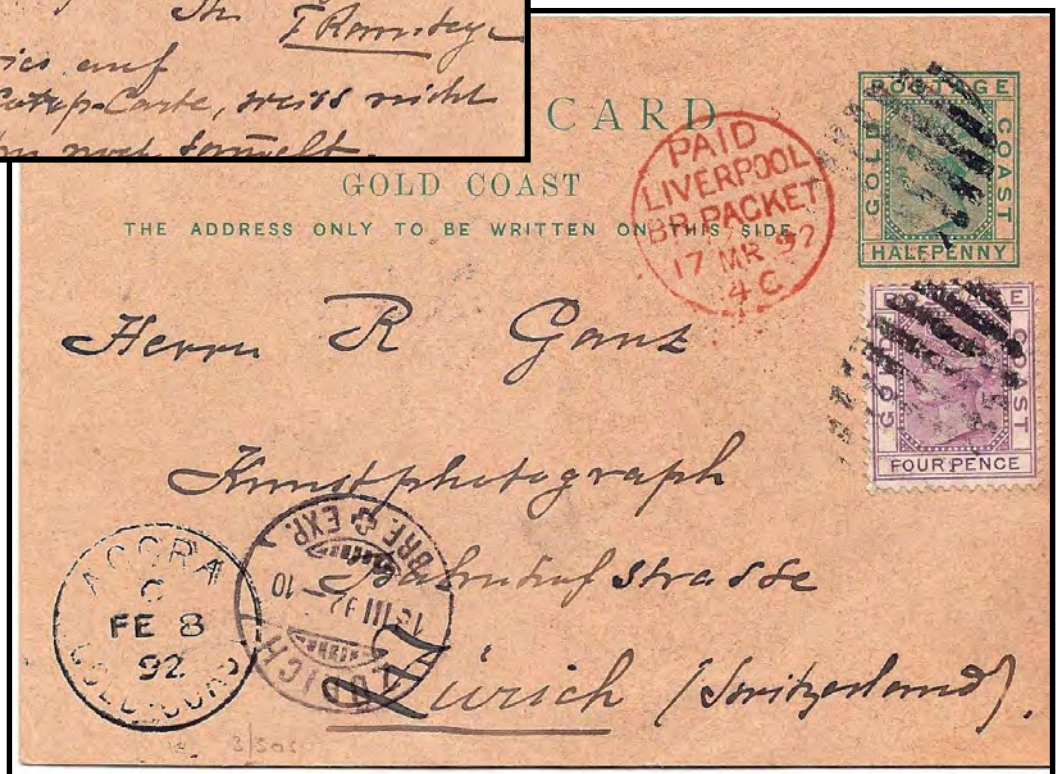 Ihr F Ramseyer
auf
Carte, weiss nicht
noch samelt.
CARD
GOLD COAST
THE ADDRESS ONLY TO BE WRITTEN ON THIS SIDE
PAID
LIVERPOOL
BR. PACKET
17 MR 92
4 C
POSTAGE
GOLD
COAST
HALFPENNY
GOLD
COAST
FOUR PENCE
Herrn R Ganz
Kunstphotograph
Bahnhofstrasse
Zürich (Switzerland).
ACCRA
C
FE 8
92
GOLD COAST
ZÜRICH
III 92 - 10
BRF. EXP.